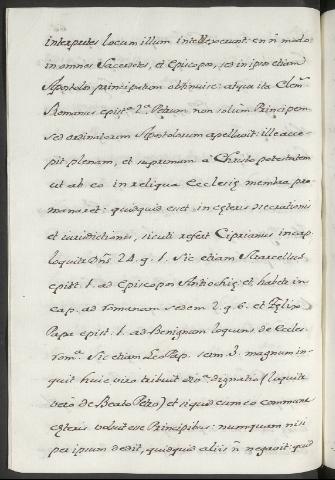 interpretes locum illum intellexerunt: en ñ modo
in omnes Sacerdotes, et Episcopos, sed in ipsos etiam
Apostolos principatum obtinuit: atque ita Clem.s
Romanus epist.a 2.a Petrum non solum Principem
sed ordinatorem Apostolorum apellavit: ille acce-
pit plenam, et supremam a Christo potestatem
ut ab eo in reliqua Ecclesię membra pro-
manaret: quidquid esset in cęteris discretionis
et iurisdictionis, sicuti refert Ciprianus in cap.
loquitur Dñs 24. q. 1. Sic etiam Marcellus
epist. 1. ad Episcopos Antiochię: et habetur in
cap. ad romanam sedem 2. q. 6. et Fęlix
Papa epist. 1. ad Benignum loquens de Eccles.
rom.a Sic etiam Leo Pap. serm. 3. magnum in-
quit huic viro tribuit div.a dignatio (loquitur
vero de Beato Petro) et si quid cum eo commune
cęteris voluit esse Principibus: numquam nisi
per ipsum dedit, quidquid aliis ñ negavit: quod